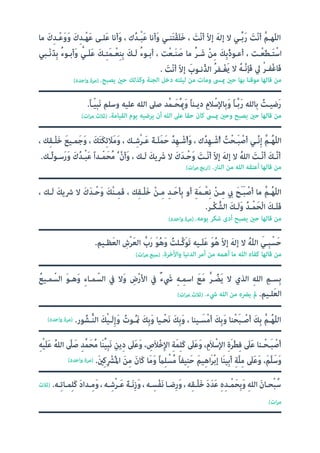 اللّهـمَّ أَنْتَ رَبِّـي لا إلهَ إلاّ أَنْتَ ، خَلَقْتَنـي وَأَنا عَبْـدُك ، وَأَنا عَلـى عَهْـدِكَ وَوَعْـدِكَ ما
اسْتَـطَعْـت ، أَعـوذُبِكَ مِنْ شَـرِّ ما صَنَـعْت ، أَبـوءُ لَـكَ بِنِعْـمَتِـكَ عَلَـيَّ وَأَبـوءُ بِذَنْـبي
فَاغْفـِرْ لي فَإِنَّـهُ لا يَغْـفِرُ الذُّنـوبَ إِلاّ أَنْتَ .
من قالها موقنا بها حين يمسى ومات من ليلته دخل الجنة وكذلك حين يصبح. (مرة واحدة)
رَضيـتُ بِاللهِ رَبَّـاً وَبِالإسْلامِ ديـناً وَبِمُحَـمَّدٍ صلى الله عليه وسلم نَبِيّـاً.
من قالها حين يصبح وحين يمسى كان حقا على الله أن يرضيه يوم القيامة. (ثلاث مرات)
اللّهُـمَّ إِنِّـي أَصْبَـحْتُ أُشْـهِدُك ، وَأُشْـهِدُ حَمَلَـةَ عَـرْشِـك ، وَمَلَائِكَتَكَ ، وَجَمـيعَ خَلْـقِك ،
أَنَّـكَ أَنْـتَ اللهُ لا إلهَ إلاّ أَنْـتَ وَحْـدَكَ لا شَريكَ لَـك ، وَأَنَّ مُحَمَّـداً عَبْـدُكَ وَرَسـولُـك.
من قالها أعتقه الله من النار. (أربع مرات)
اللّهُـمَّ ما أَصْبَـحَ بي مِـنْ نِعْـمَةٍ أَو بِأَحَـدٍ مِـنْ خَلْـقِك ، فَمِـنْكَ وَحْـدَكَ لا شريكَ لَـك ،
فَلَـكَ الْحَمْـدُ وَلَـكَ الشُّكْـر.
من قالها حين يصبح أدى شكر يومه. (مرة واحدة)
حَسْبِـيَ اللهُ لا إلهَ إلاّ هُوَ عَلَـيهِ تَوَكَّـلتُ وَهُوَ رَبُّ العَرْشِ العَظـيم.
من قالها كفاه الله ما أهمه من أمر الدنيا والأخرة. (سبع مرات)
بِسـمِ اللهِ الذي لا يَضُـرُّ مَعَ اسمِـهِ شَيءٌ في الأرْضِ وَلا في السّمـاءِ وَهـوَ السّمـيعُ
العَلـيم. لم يضره من الله شيء. (ثلاث مرات)
اللّهُـمَّ بِكَ أَصْـبَحْنا وَبِكَ أَمْسَـينا ، وَبِكَ نَحْـيا وَبِكَ نَمُـوتُ وَإِلَـيْكَ النُّـشُور. (مرة واحدة)
أَصْبَـحْـنا عَلَى فِطْرَةِ الإسْلاَمِ، وَعَلَى كَلِمَةِ الإِخْلاَصِ، وَعَلَى دِينِ نَبِيِّنَا مُحَمَّدٍ صَلَّى اللهُ عَلَيْهِ
وَسَلَّمَ، وَعَلَى مِلَّةِ أَبِينَا إبْرَاهِيمَ حَنِيفاً مُسْلِماً وَمَا كَانَ مِنَ المُشْرِكِينَ. (مرة واحدة)
سُبْحـانَ اللهِ وَبِحَمْـدِهِ عَدَدَ خَلْـقِه ، وَرِضـا نَفْسِـه ، وَزِنَـةَ عَـرْشِـه ، وَمِـدادَ كَلِمـاتِـه. (ثلاث
مرات)